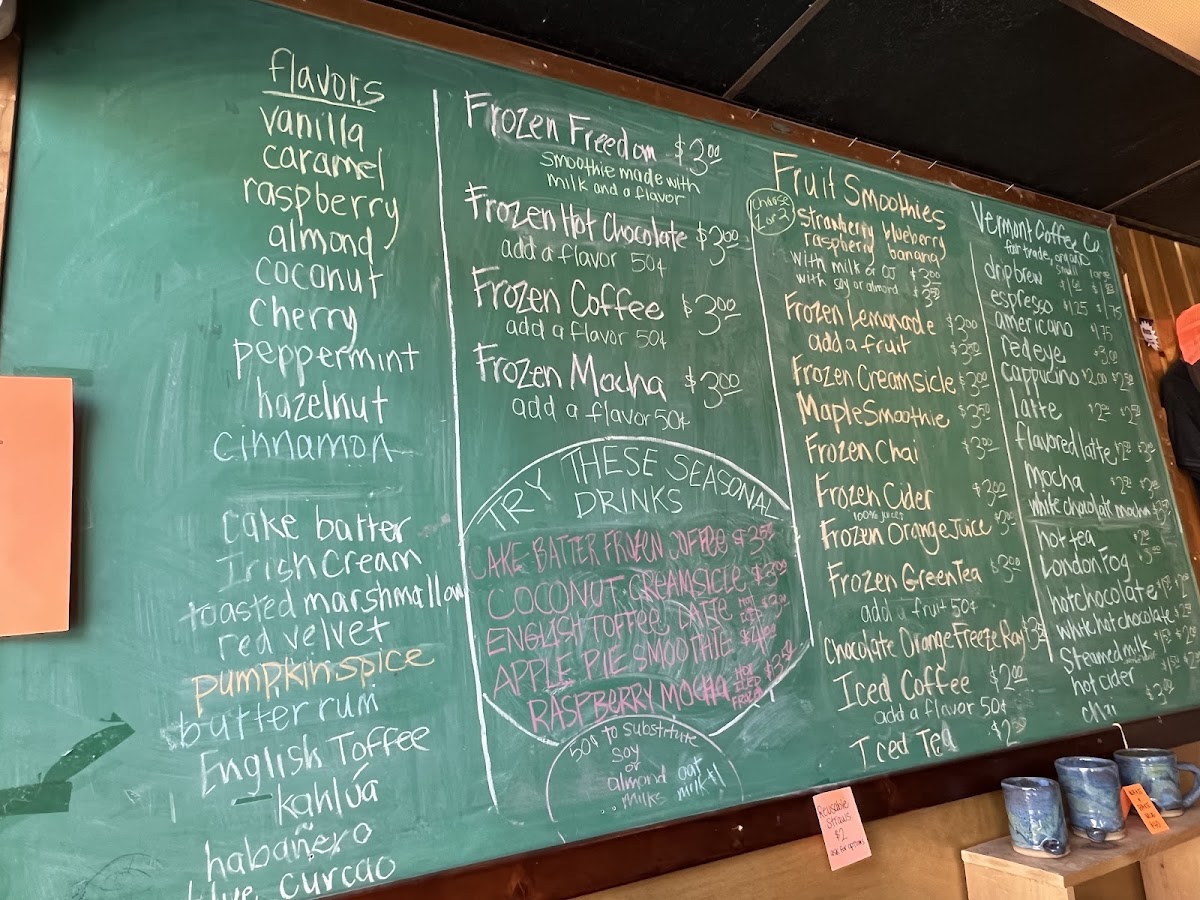 flavors
vanilla
caramel
raspberry
almond
coconut
cherry
peppermint
hazelnut
cinnamon
cake batter
Irish Cream
toasted marshmallow
red velvet
pumpkin spice
butter rum
English Toffee
kahlúa
habañero
blue curcao
Frozen Freedom $3.00
smoothie made with
milk and a flavor
Frozen Hot Chocolate $3.00
add a flavor 50¢
Frozen Coffee $3.00
add a flavor 50¢
Frozen Mocha $3.00
add a flavor 50¢
TRY THESE SEASONAL
DRINKS
CAKE BATTER FROZEN COFFEE $3.50
COCONUT CREAMSICLE $3.00
ENGLISH TOFFEE LATTE
APPLE PIE SMOOTHIE
RASPBERRY MOCHA HOT ICED FROZEN $3.50
50¢ to substitute
soy
or
almond
milks
oat
milk +1
Fruit Smoothies
choose
1 or 2
strawberry blueberry
raspberry banana
with milk or OJ $3.00
with soy or almond $3.50
Frozen Lemonade $3.00
add a fruit $3.50
Frozen Creamsicle $3.00
Maple Smoothie $3.50
Frozen Chai $3.00
Frozen Cider $3.00
100% juice
Frozen Orange Juice $3.00
Frozen Green Tea $3.00
add a fruit 50¢
Chocolate Orange Freeze Ray
Iced Coffee $2.00
add a flavor 50¢
Iced Tea $2.00
Vermont Coffee Co.
fair trade, organic
small large
drip brew
espresso $1.25 $1.75
americano $1.75
redeye $3.00
cappucino $2.00 $2.50
latte $2.00 $2.50
flavored latte $2.50 $3.00
mocha $2.50 $3.00
white chocolate mocha
hot tea $2.00
London Fog $3.00
hot chocolate
white hot chocolate
Steamed milk
hot cider
chai $2.00
Reusable
straws
$2
ask for options